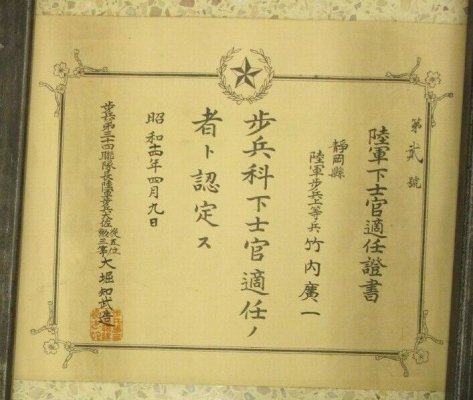 第貳號
陸軍下士官適任證書
靜岡縣
陸軍步兵上等兵 竹内廣一
步兵科下士官適任ノ
者ト認定ス
昭和十四年四月九日
步兵第三十四聯隊長陸軍步兵大佐 從五位勲三等 大堀知武造